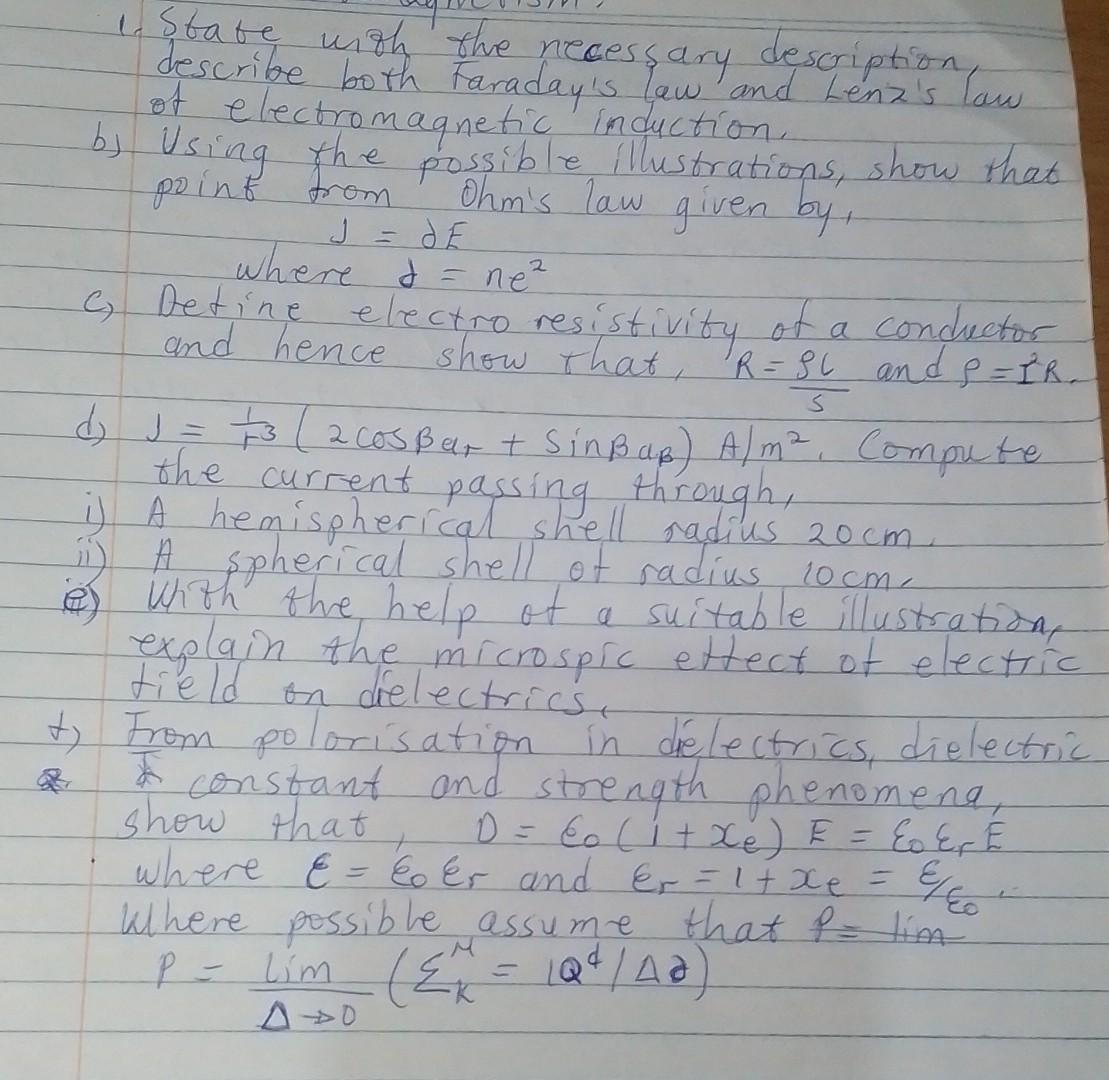 1. State with the necessary description,
describe both Faraday's law and Lenz's law
of electromagnetic induction.
b) Using the possible illustrations, show that
point from Ohm's law given by,
J = ∂E
where ∂ = ne²
c) Define electro resistivity of a conductor
and hence show that, R = ρL/S and ρ = I²R.
d) J = 1/r3 (2cosβar + Sinβaβ) A/m². Compute
the current passing through,
i) A hemispherical shell radius 20cm.
ii) A spherical shell of radius 10cm.
e) With the help of a suitable illustration,
explain the microspic effect of electric
field on dielectrics.
f) From polarisation in dielectrics, dielectric
constant and strength phenomena,
show that, D = ε0 (1 + xe) E = ε0 εr E
where ε = ε0 εr and εr = 1 + xe = ε/ε0.
Where possible assume that P = lim
P = lim Δ→0 (Σ^N_K = 1Q^d / Δ∂)